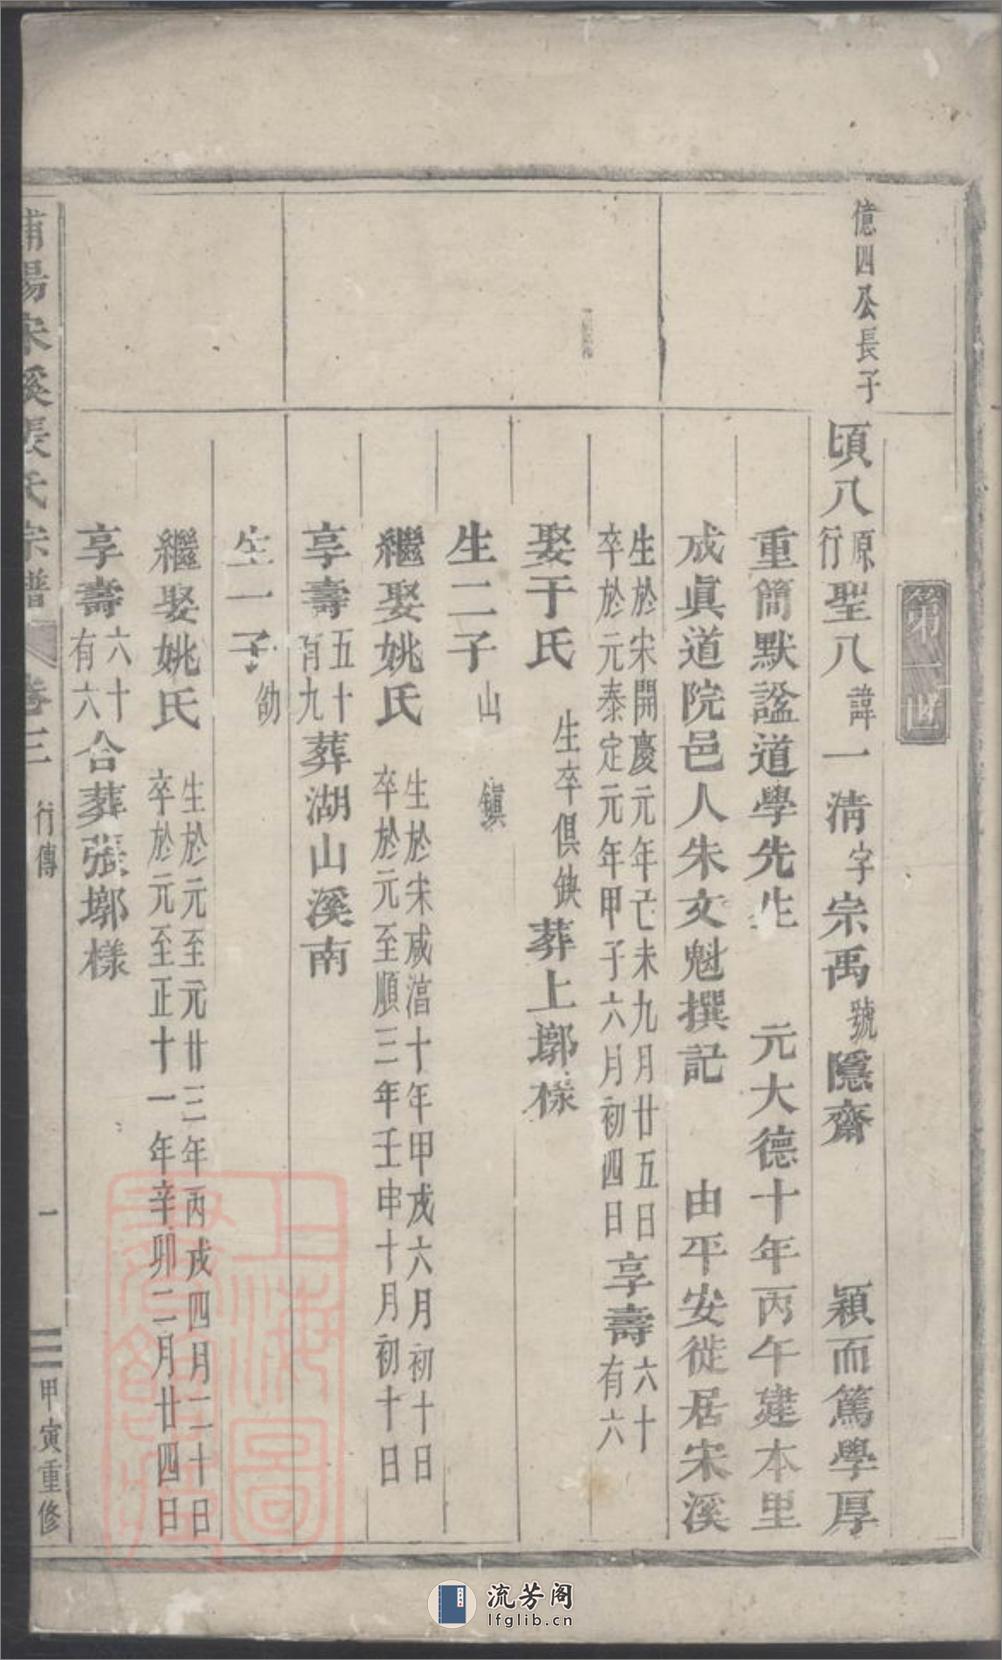 第一世
億四公長子
頃八原行聖八諱一淸字宗禹號隱齋 穎而篤學厚
重簡默諡道學先生 元大德十年丙午建本里
成眞道院邑人朱文魁撰記 由平安徙居宋溪
生於宋開慶元年己未九月廿五日
卒於元泰定元年甲子六月初四日
享壽六十有六
娶于氏 生卒俱缺 葬上墎樣
生二子 山 鎭
繼娶姚氏 生於宋咸淳十年甲戌六月初十日
卒於元至順三年壬申十月初十日
享壽五十有九葬湖山溪南
生一子 劬
繼娶姚氏 生於元至元廿三年丙戌四月二十日
卒於元至正十一年辛卯二月廿四日
享壽六十有六合葬張墎樣
浦陽宋溪張氏宗譜 卷三 行傳 一 甲寅重修
上海圖書館藏
流芳阁
lfglib.cn